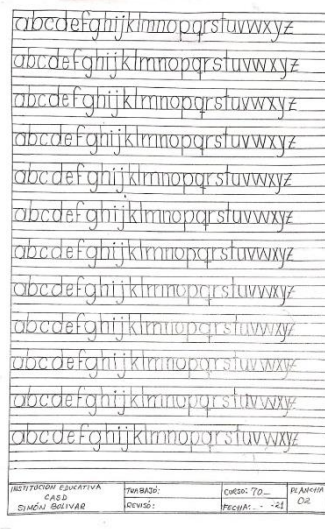 abcdefghijklmnopqrstuvwxyz
abcdefghijklmnopqrstuvwxyz
abcdefghijklmnopqrstuvwxyz
abcdefghijklmnopqrstuvwxyz
abcdefghijklmnopqrstuvwxyz
abcdefghijklmnopqrstuvwxyz
abcdefghijklmnopqrstuvwxyz
abcdefghijklmnopqrstuvwxyz
abcdefghijklmnopqrstuvwxyz
abcdefghijklmnopqrstuvwxyz
abcdefghijklmnopqrstuvwxyz
abcdefghijklmnopqrstuvwxyz
INSTITUCIÓN EDUCATIVA
CASD
SIMÓN BOLIVAR
TRABAJÓ:
REVISÓ:
CURSO: 70_
FECHA: . - -21
PLANCHA
02